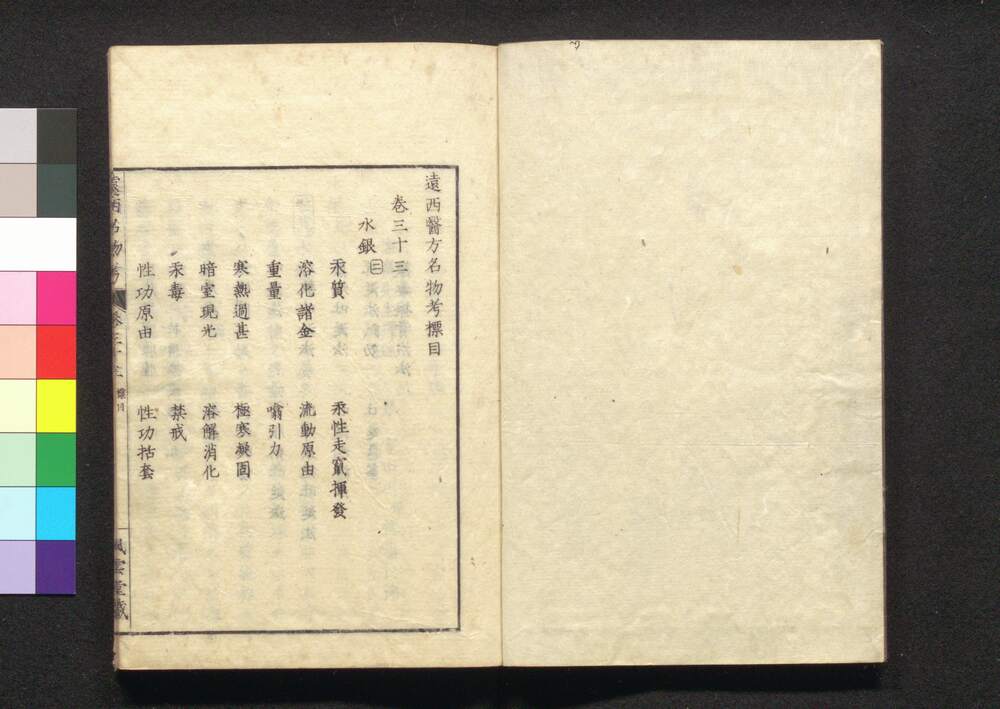 遠西醫方名物考標目
巻三十三
水銀 二
汞質 汞性走竄揮發
溶化諸金 流動原由
重量 噏引力
寒熱過甚 極寒凝固
暗室現光 溶解消化
汞毒 禁戒
性功原由 性功括套
遠西名物考 巻三十三 標目 風雲堂藏